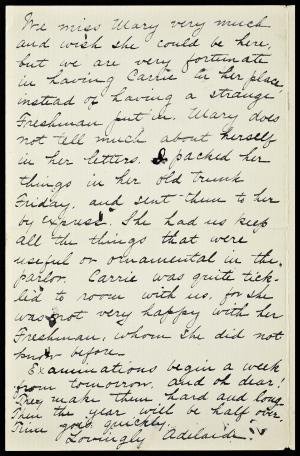 We miss Mary very much
and wish she could be here,
but we are very fortunate
in having Carrie in her place,
instead of having a strange
Freshman put in. Mary does
not tell much about herself
in her letters. I packed her
things in her old trunk
Friday, and sent them to her
by express. She had us keep
all the things that were
useful or ornamental in the
parlor. Carrie was quite tick-
led to room with us, for she
was not very happy with her
Freshman, whom she did not
know before.
Examinations begin a week
from tomorrow, and oh dear!
They make them hard and long.
Then the year will be half over.
Time goes quickly.
Lovingly Adelaide.